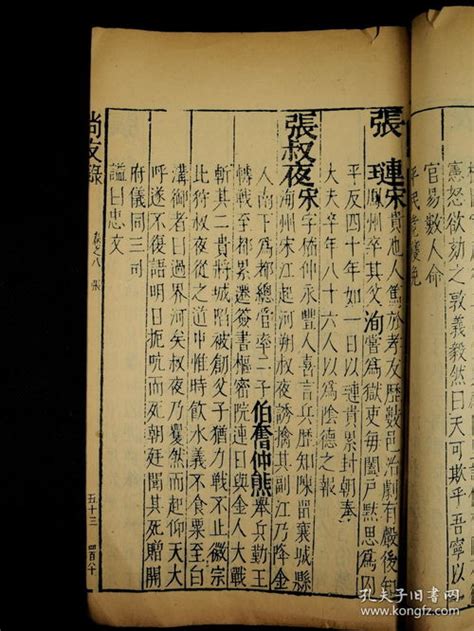 憲怒欲劾之敦義毅然曰天可欺乎吾寧以
官易數人命
平民竟獲免
張璉宋貴池人篤於孝友歷數邑治劇有嚴後知
鳳州卒其父洵嘗為獄吏每闔戶默思為囚
平反四十年如一日以璉貴累封朝奉
大夫卒年八十六人以為陰德之報
張叔夜宋字嵇仲永豐人喜言兵歷知陳留襄城縣
海州宋江起河朔叔夜誘擒其副江乃降金
人南下為都總管率二子伯奮仲熊舉兵勤王
轉戰至都累遷簽書樞密院連日與金人大戰
斬其二貴將城陷被創父子猶力戰不止徽宗
北狩叔夜從之道中惟時飲水義不食粟至白
溝御者曰過界河矣叔夜乃矍然仰天大
呼遂不復語明日扼吭而死朝廷聞其死贈開
府儀同三司
謚曰忠文
尚友錄 卷之八 張 五十三
孔夫子旧书网
www.kongfz.com